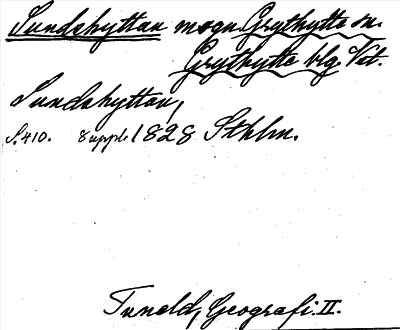 Sundshyttan mogn. Grythytte sn.
Grythytte blg. Vet.
Sundshyttan,
S. 410. 8 uppl. 1828 Sthlm.
Tuneld, Geografi. II.